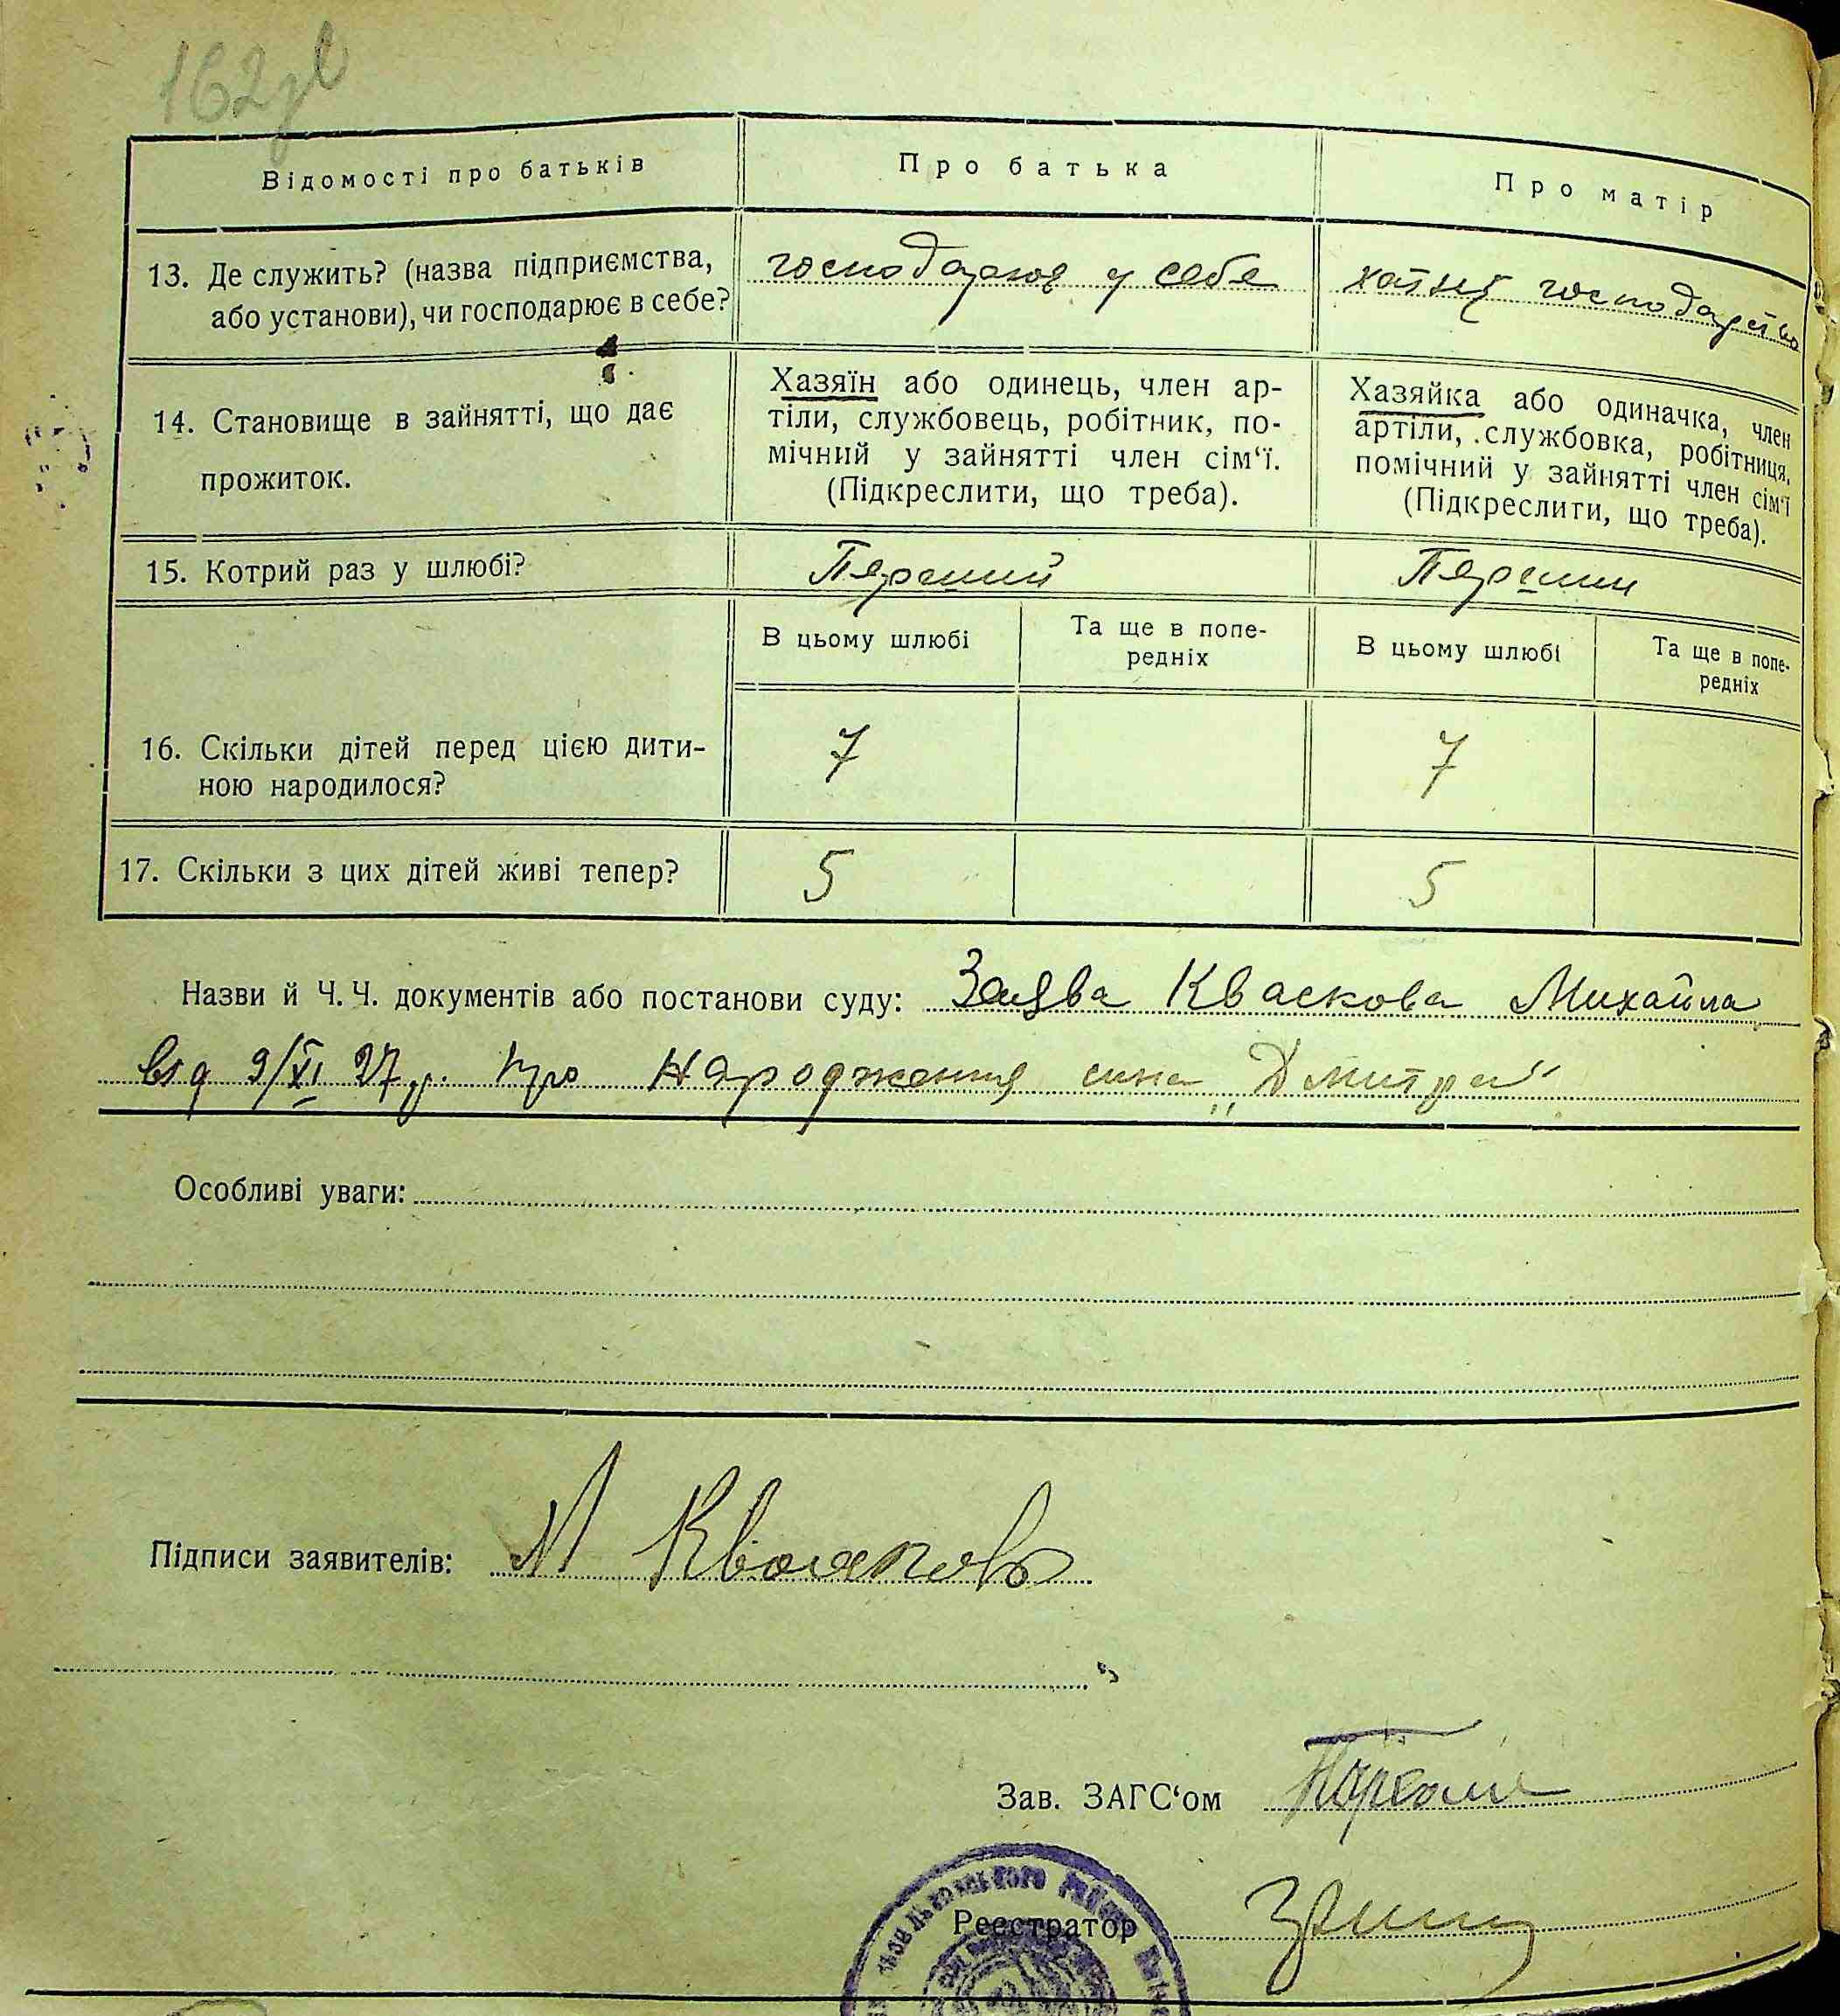 162
Відомості про батьків
Про батька
Про матір
13. Де служить? (назва підприємства,
або установи), чи господарює в себе?
господарює у себе
хатнє господарство
14. Становище в зайнятті, що дає
прожиток.
Хазяїн або одинець, член ар-
тіли, службовець, робітник, по-
мічний у зайнятті член сім‘ї.
(Підкреслити, що треба).
Хазяйка або одиначка, член
артіли, службовка, робітниця,
помічний у зайнятті член сім‘ї
(Підкреслити, що треба).
15. Котрий раз у шлюбі?
Перший
Перший
В цьому шлюбі
Та ще в попе-
редніх
В цьому шлюбі
Та ще в попе-
редніх
16. Скільки дітей перед цією дити-
ною народилося?
7
7
17. Скільки з цих дітей живі тепер?
5
5
Назви й Ч. Ч. документів або постанови суду: Заява Кваскова Михайла
від 9/XI 27 р. про народження сина „Дмитра“
Особливі уваги:
Підписи заявителів: М Квасков
Зав. ЗАГС‘ом
Реєстратор